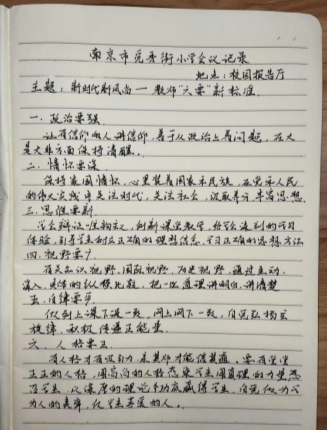 南京市凭舟街小学会议记录
地点：校园报告厅
主题：新时代新风尚—教师“六要”新标准
一、政治要强
让有信仰的人讲信仰，善于从政治上看问题，在大
是大非面前保持清醒。
二、情怀要深
保持家国情怀，心里装着国家和民族，在党和人民
的伟大实践中关注时代，关注社会，汲取养分，丰富思想
三、思维要新
学会辩证唯物主义，创新课堂教学，给学生深刻的学习
体验，引导学生树立正确的理想信念，学习正确的思想方法
四、视野要广
有知识视野，国际视野，历史视野，通过生动、
深入、具体的纵横比较，把一些道理讲明白、讲清楚
五、自律要严
做到上课下课一致、网上网下一致，自觉弘扬主
旋律，积极传递正能量
六、人格要正
有人格才有吸引力，亲其师才能信其道，要有堂堂
正正的人格，用高尚的人格感染学生用真理的力量感
召学生，以深厚的理论功底赢得学生，自觉做为学
为人的表率，做学生喜爱的人。